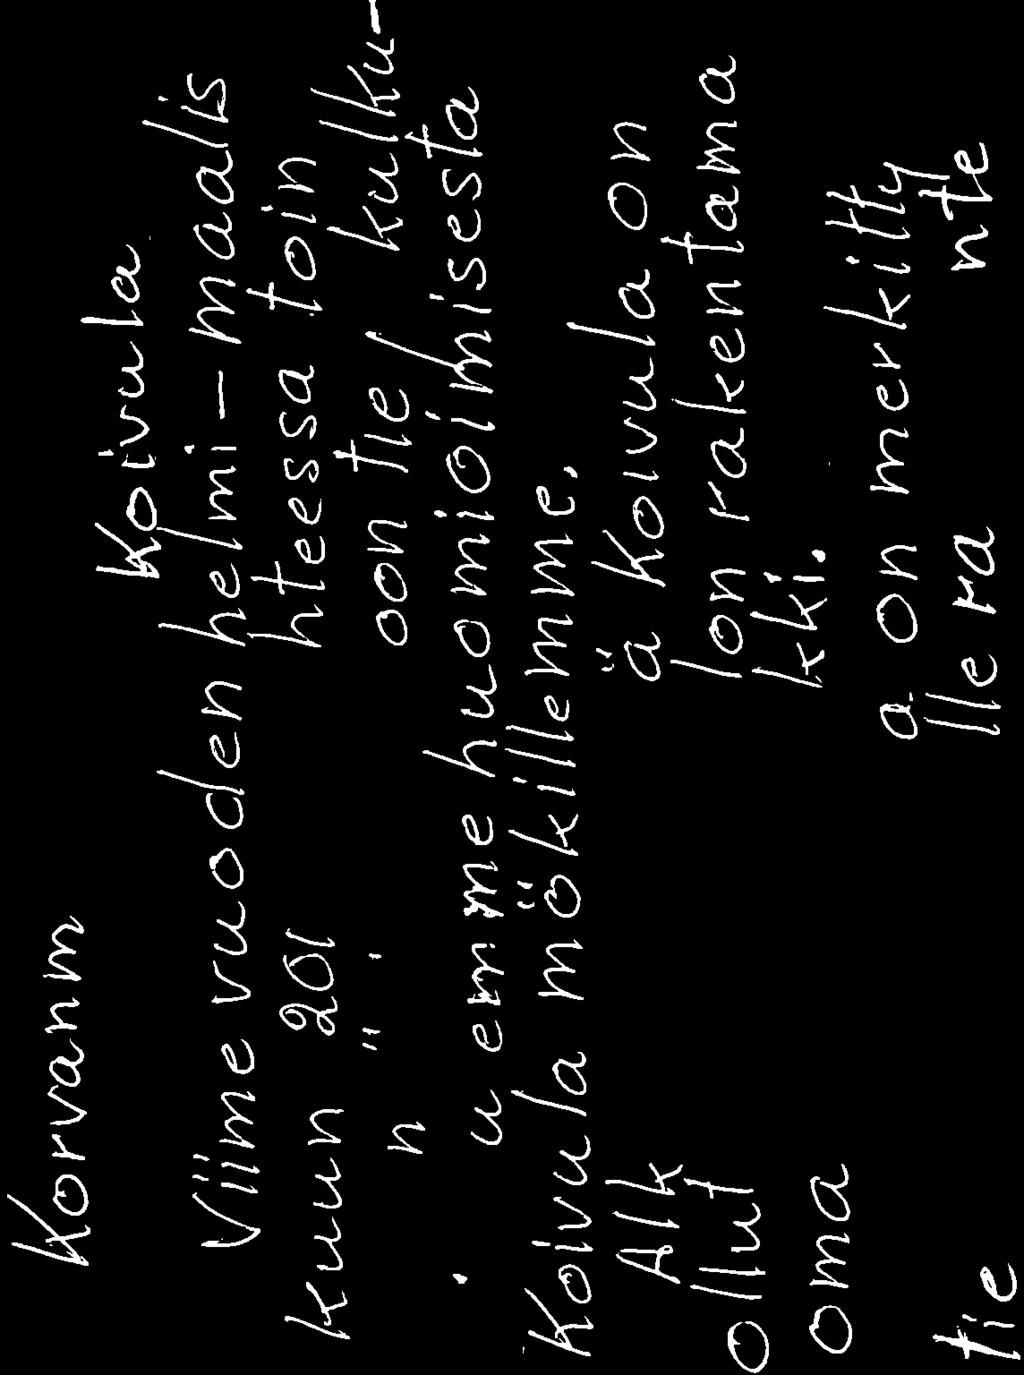 Korvanm
Koivula
Viime vuoden helmi-maalis
kuun 201 hteessa toin
n oon tie kulku-
u emme huomioimisesta
Koivula mökillemme.
Alk ä Koivula on
ollut lon rakentama
oma kki.
a on merkitty
tie lle ra nte